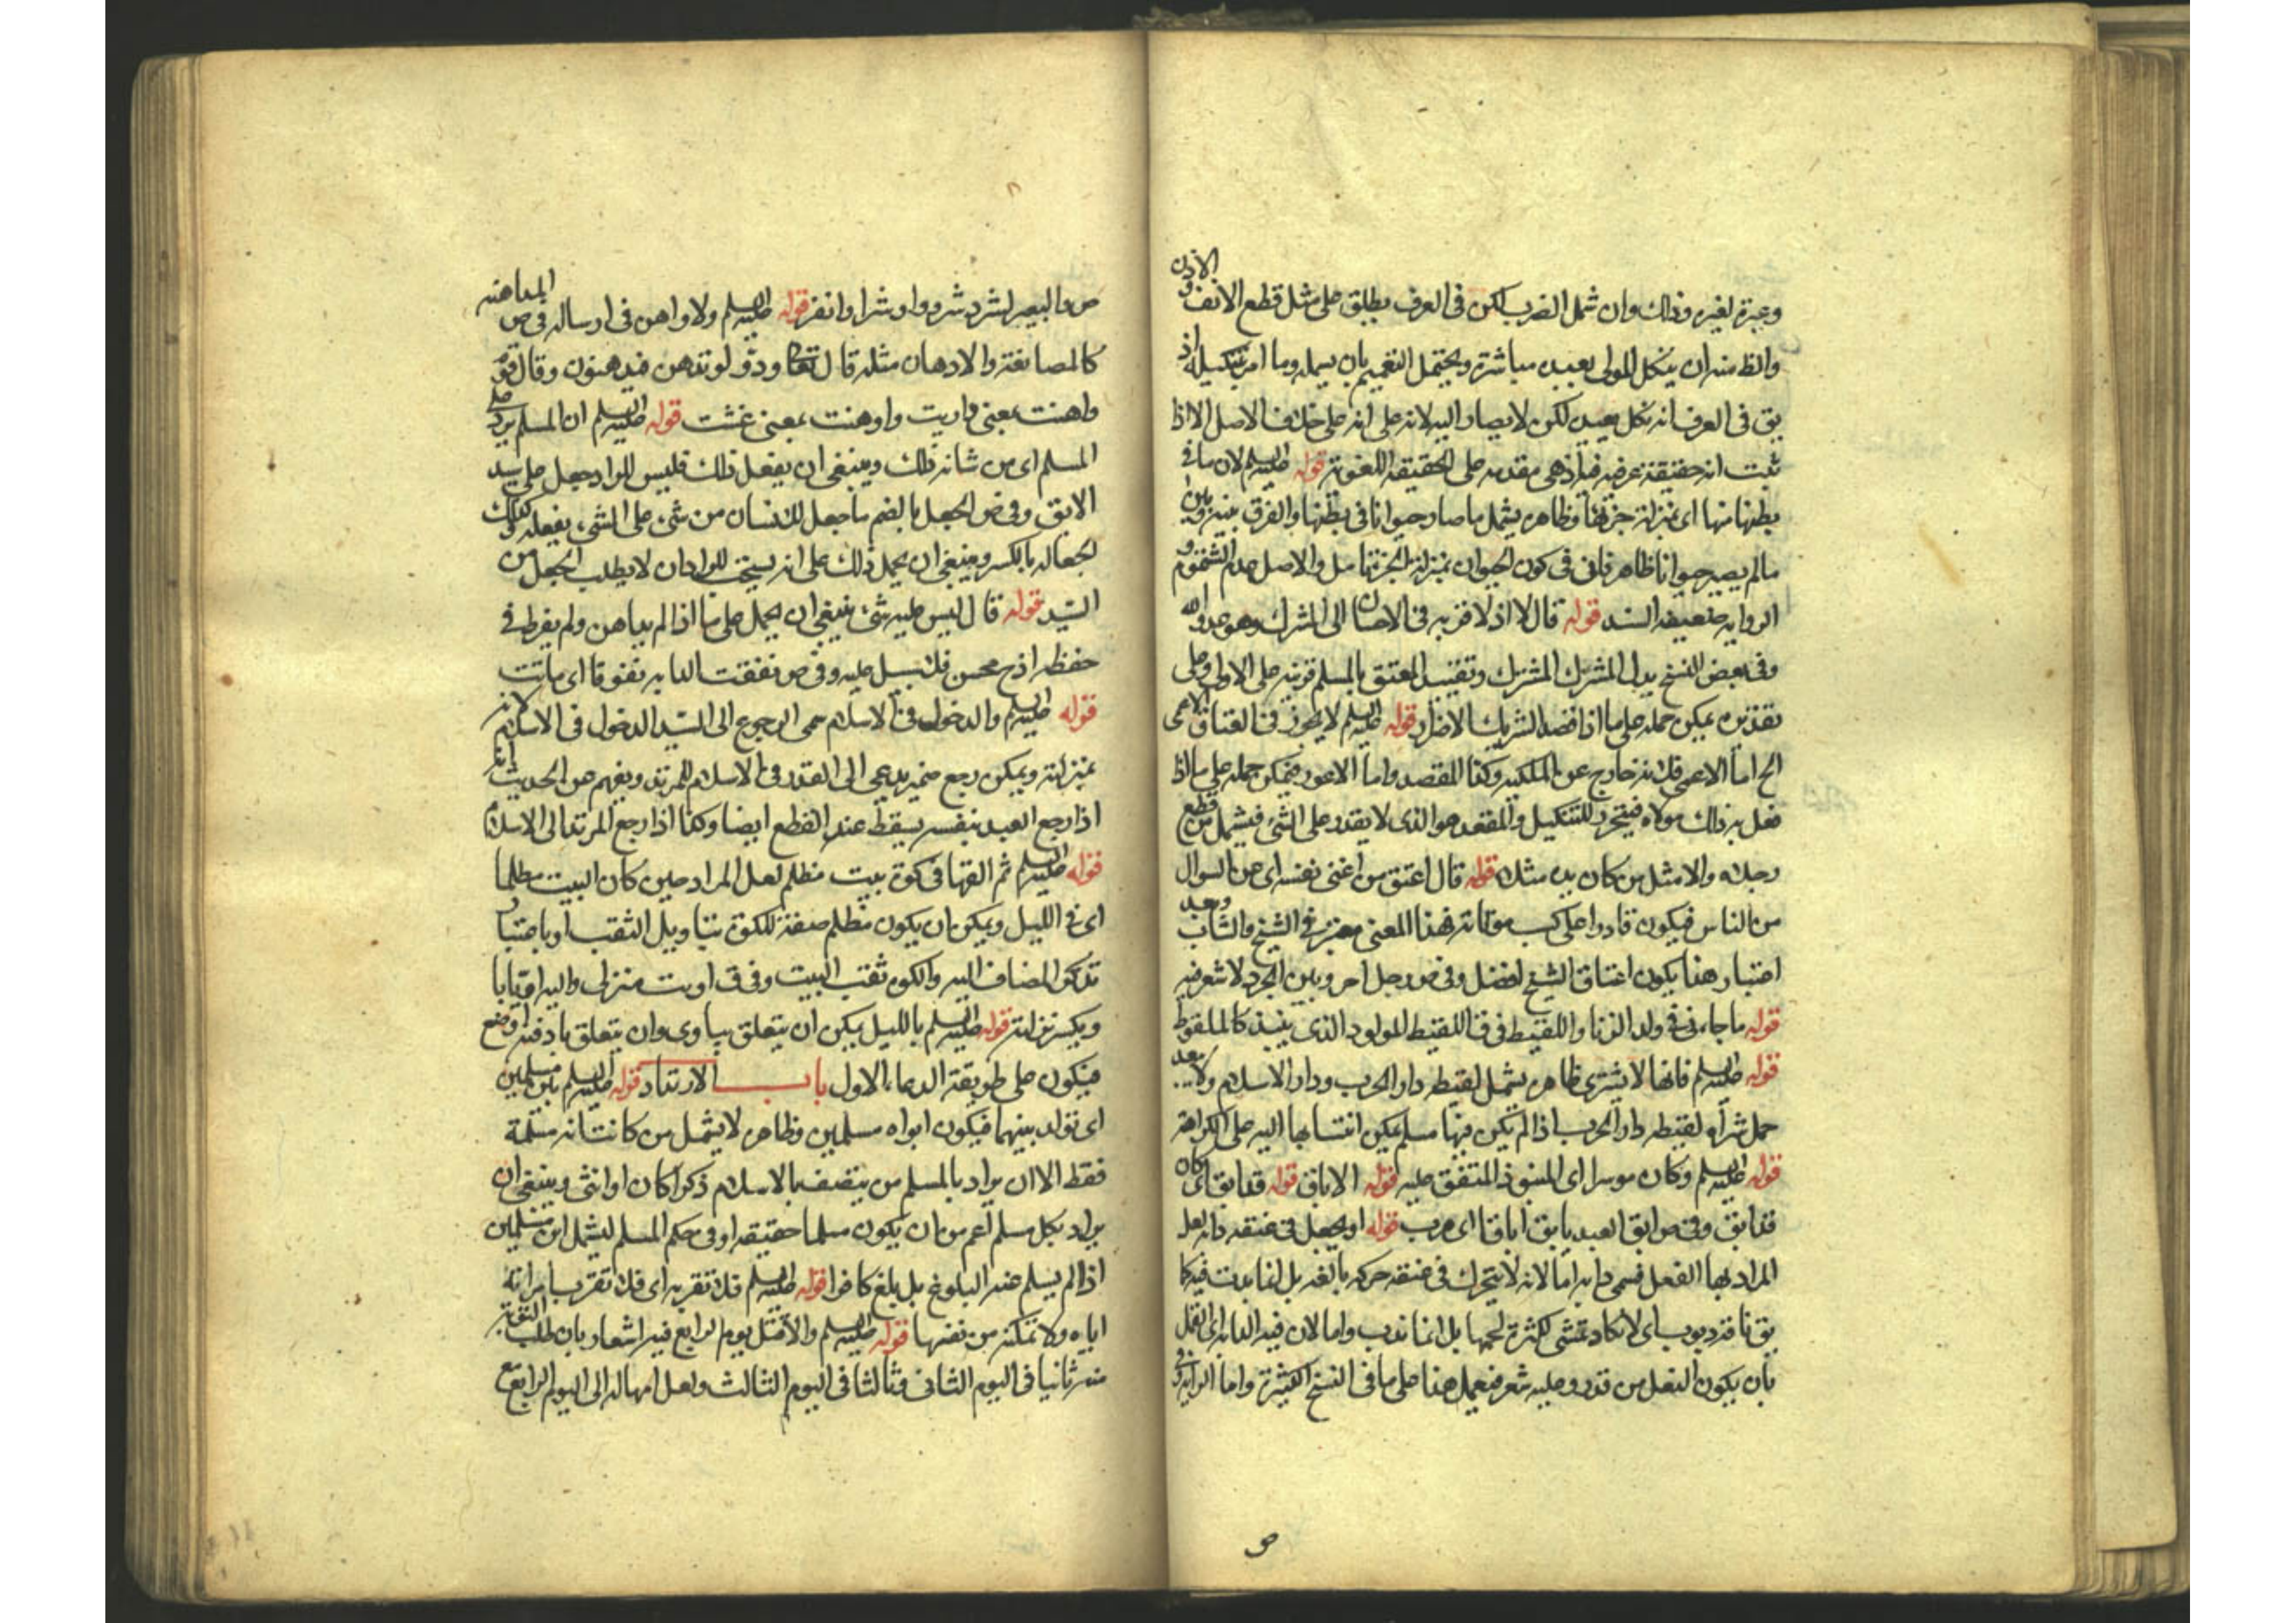 وعبرة لغيره وذلك وان شمل الضرب لكن فى العرف يطلق على مثل قطع الانف والاذن
والظ منه ان ينكل المولى بعبده مباشرة ويحتمل التعميم بان يسمله وما امر بتنكيله اذ
يق فى العرف انه نكل بعبده لكن لا يصار اليه لانه على انه على خلاف الاصل الا اذا
ثبت انه حقيقة عرفية اذ هى مقدمه على الحقيقه اللغوية قوله عليه السلم لان ما فى
بطنها منها اى بمنزلة جزئها وظاهره يشمل ما صار حيوانا فى بطنها والفرق بينه وبين
ما لم يصير حيوانا ظاهر فان فى كون الحيوان بمنزلة الجزء تامل والاصل عدم الشمول و
الروايه ضعيفه السند قوله قال لا اذ لا قربه فى الاحسان الى المشرك وهو عدو الله
وفى بعض النسخ بدل المشرك المشترك وتقييد المعتق بالمسلم قرينه على الاولى وعلى
تقديره يمكن حمله على ما اذا قصد الشريك الاضرار قوله عليه السلم لا يجوز فى العتاق الاعمى
الخ اما الاعمى فلانه خارج عن الملكيه وكذا المقعد واما الاعور فيمكن حمله على ما اذا
فعل به ذلك مولاه فيتحرر للتنكيل والمقعد هو الذى لا يقدر على الشئ فيشمل من قطع
رجلاه والا مثل من كان يده مثلا قوله قال اعتق من اغنى نفسه اى عن السوال
من الناس فيكون قادرا على كسب مؤنته فهذا المعنى معتبر فى الشيخ والشاب وبعد
اعتبار هذا يكون اعتاق الشيخ افضل وفى ص رجل اجرد بين الجرد لا شعر فيه
قوله ما جاء فى ولد الزنا واللقيط فى ق اللقيط المولود الذى ينبذ كالملقوط
قوله عليه السلم فانها لا يشترى ظاهره يشمل لقيطه دار الحرب ودار الاسلام ولا يبعد
حمل شراء لقيطه دار الحرب اذا لم يكن فيها مسلم يمكن انتسابها اليه على الكراهة
قوله عليه السلم وكان موسرا اى المنبوذ المتفق عليه قوله الاباق قوله قد ابق اى كان
قد ابق وفى ص ابق العبد يابق اباقا اى هرب قوله او يجعل فى عنقه دابه لعل
المراد بها الفعل فسمى دابه اما لانه لا يتحرك فى عنقه حركه بالغه بل انما يدب فيه كما
يق ناقة دبوب اى لا تكاد تمشى لكثرة لحمها بل انما تدب واما لان فيه الدابه اى القمل
بان يكون النعل من قدر وعليه شعر فيعمل هذا على ما فى النسخ الكثيرة واما الرايه فى
ص
ص والبعير لشرد شرودا وشرادا نفر قوله عليه السلم ولا واهن فى ارساله فى ص المداهنه
كالمصانعة والادهان مثله قال تعالى ودوا لو تدهن فيدهنون وقال قوم
داهنت بمعنى واريت وادهنت بمعنى غششت قوله عليه السلم ان المسلم يرد على
المسلم اى من شانه ذلك وينبغى ان يفعل ذلك فليس للراد جعل على سيد
الابق وفى ص الجعل بالضم ما جعل للانسان من شئ على الشئ يفعله وكذلك
الجعاله بالكسر وينبغى ان يحمل ذلك على انه يستحب للراد ان لا يطلب الجعل من
السيد قوله قال ليس عليه شئ ينبغى ان يحمل على ما اذا لم يداهن ولم يفرط فى
حفظه اذ ح محسن فلا سبيل عليه وفى ص نفقت الدابه نفوقا اى ماتت
قوله عليه السلم والدخول فى الاسلام سمى الرجوع الى السيد الدخول فى الاسلام لانه
بمنزلته ويمكن رجع ضمير يدعى الى العبد وفى الاسلام للمرتد ويفهم من الحديث انه
اذا رجع العبد بنفسه يسقط عنه القطع ايضا وكذا اذا رجع المرتد الى الاسلام
قوله عليه السلم ثم القها فى كوة بيت مظلم لعل المراد حين كان البيت مظلما
اى فى الليل ويمكن ان يكون مظلم صفة للكوة بتاويل الثقب او باعتبار
تذكر المضاف اليه والكوه ثقب البيت وفى ق اويت منزلى واليه اويا
ويكسر نزلته قوله عليه السلم بالليل يمكن ان يتعلق بياوى وان يتعلق بادفنه او ضع
فيكون على طريقة الدعاء الاول باب الارتداد قوله عليه السلم بين مسلمين
اى تولد بينهما فيكون ابواه مسلمين وظاهره لا يشمل من كانت امه مسلمة
فقط الا ان يراد بالمسلم من يتصف بالاسلام ذكرا كان او انثى وينبغى ان
يراد بكل مسلم اعم من ان يكون مسلما حقيقه او فى حكم المسلم ليشمل ابن مسلمين
اذا لم يسلم عند البلوغ بل بلغ كافرا قوله عليه السلم فلا تقربه اى فلا تقرب امراته
اياه ولا تمكنه من نفسها قوله عليه السلم والا قتل يوم الرابع فيه اشعار بان طلب التوبة
منه ثانيا فى اليوم الثانى وثالثا فى اليوم الثالث ولعل امهاله الى اليوم الرابع